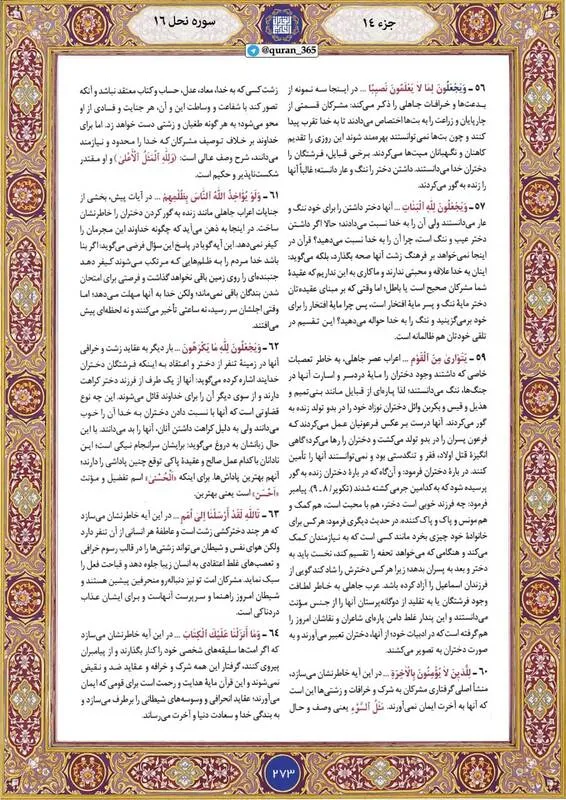 جزء ۱۴
سوره نحل ۱۶
@quran_365
۵۶ ـ وَيَجْعَلُونَ لِمَا لَا يَعْلَمُونَ نَصِيبًا ... در اینجا سه نمونه از
بدعت‌ها و خرافات جاهلی را ذکر می‌کند: مشرکان قسمتی از
چارپایان و زراعت را به بت‌ها اختصاص می‌دادند تا به خدا تقرب پیدا
کنند و چون بت‌ها نمی‌توانستند بهره‌مند شوند این روزی را تقدیم
کاهنان و نگهبانان میت‌ها می‌کردند. برخی قبایل، فرشتگان را
دختران خدا می‌دانستند. داشتن دختر را ننگ و عار دانسته؛ غالباً آنها
را زنده به گور می‌کردند.
۵۷ ـ وَيَجْعَلُونَ لِلَّهِ الْبَنَاتِ ... آنها دختر داشتن را برای خود ننگ و
عار می‌دانستند ولی آن را به خدا نسبت می‌دادند؛ حالا اگر داشتن
دختر عیب و ننگ است، چرا آن را به خدا نسبت می‌دهید؟ قرآن در
اینجا نمی‌خواهد بر فرهنگ زشت آنها صحه بگذارد، بلکه می‌گوید:
اینان به خدا علاقه و محبتی ندارند و ما کاری به این نداریم که عقیدهٔ
شما مشرکان صحیح است یا باطل؛ اما وقتی که بر مبنای عقیده‌تان
دختر مایهٔ ننگ و پسر مایهٔ افتخار است، پس چرا مایهٔ افتخار را برای
خود برمی‌گزینید و ننگ را به خدا حواله می‌دهید؟ این تقسیم در
تلقی خودتان هم ظالمانه است.
۵۹ ـ يَتَوَارَىٰ مِنَ الْقَوْمِ ... اعراب عصر جاهلی، به خاطر تعصبات
خاصی که داشتند وجود دختران را مایهٔ دردسر و اسارت آنها در
جنگ‌ها، ننگ می‌دانستند؛ لذا پاره‌ای از قبایل مانند بنی‌تمیم و
هذیل و قیس و بکربن وائل دختران نوزاد خود را در بدو تولد زنده به
گور می‌کردند. آنها درست بر عکس فرعونیان عمل می‌کردند که
فرعون پسران را در بدو تولد می‌کشت و دختران را رها می‌کرد؛ گاهی
انگیزهٔ قتل اولاد، فقر و تنگدستی بود و نمی‌توانستند آنها را تأمین
کنند. در پارهٔ دختران فرمود: و آن‌گاه که در بارهٔ دختران زنده به گور
پرسیده شود که به کدامین جرمی کشته شدند (تکویر/ ۸ ـ ۹). پیامبر
فرمود: چه فرزند خوبی است دختر، هم با محبت است، هم کمک و
هم مونس و پاک و پاک کننده. در حدیث دیگری فرمود: هر کس برای
خانوادهٔ خود چیزی بخرد مانند کسی است که به نیازمندان کمک
می‌کند و هنگامی که می‌خواهد تحفه را تقسیم کند، نخست باید به
دختر و بعد به پسران بدهد؛ زیرا هر کس دخترش را شاد کند گویی از
فرزندان اسماعیل را آزاد کرده باشد. عرب جاهلی به خاطر لطافت
وجود فرشتگان یا به تقلید از دوگانه‌پرستان آنها را از جنس مؤنث
می‌دانستند و این پندار غلط دامن پاره‌ای شاعران و نقاشان امروز را
هم گرفته است که در ادبیات خود؛ از آنها، دختران تعبیر می‌آورند و به
صورت دختران به تصویر می‌کشند.
۶۰ ـ لِلَّذِينَ لَا يُؤْمِنُونَ بِالْآخِرَةِ ... در این آیه خاطرنشان می‌سازد،
منشأ اصلی گرفتاری مشرکان به شرک و خرافات و زشتی‌ها این است
که آنها به آخرت ایمان نمی‌آورند. مَثَلُ السَّوْءِ یعنی وصف و حال
زشت کسی که به خدا، معاد، عدل، حساب و کتاب معتقد نباشد و آنکه
تصور کند با شفاعت و وساطت این و آن، هر جنایت و فسادی از او
محو می‌شود؛ به هر گونه طغیان و زشتی دست خواهد زد. اما برای
خداوند بر خلاف توصیف مشرکان که خدا را محدود و نیازمند
می‌دانند، شرح وصف عالی است: (وَلِلَّهِ الْمَثَلُ الْأَعْلَىٰ) و او مقتدر
شکست‌ناپذیر و حکیم است.
۶۱ ـ وَلَوْ يُؤَاخِذُ اللَّهُ النَّاسَ بِظُلْمِهِمْ ... در آیات پیش، بخشی از
جنایات اعراب جاهلی مانند زنده به گور کردن دختران را خاطرنشان
ساخت. در اینجا به ذهن می‌آید که چگونه خداوند این مجرمان را
کیفر نمی‌دهد. این آیه گویا در پاسخ این سؤال فرضی می‌گوید: اگر بنا
باشد خدا مردم را به ظلم‌هایی که مرتکب می‌شوند کیفر دهد
جنبنده‌ای را روی زمین باقی نخواهد گذاشت و فرصتی برای امتحان
شدن بندگان باقی نمی‌ماند؛ ولکن خدا به آنها مهلت می‌دهد؛ اما
وقتی اجلشان سر رسید، نه ساعتی تأخیر می‌کنند و نه لحظه‌ای پیش
می‌افتند.
۶۲ ـ وَيَجْعَلُونَ لِلَّهِ مَا يَكْرَهُونَ ... بار دیگر به عقاید زشت و خرافی
آنها در زمینهٔ تنفر از دختر و اعتقاد به اینکه فرشتگان دختران
خدایند اشاره کرده می‌گوید: آنها از یک طرف از فرزند دختر کراهت
دارند و از سوی دیگر آن را برای خداوند قائل می‌شوند. این چه نوع
قضاوتی است که آنها با نسبت دادن دختران به خدا آن را خوب
می‌دانند ولی به دلیل کراهت داشتن آنان، آنها را بد می‌دانند. با این
حال زبانشان به دروغ می‌گوید: برایشان سرانجام نیکی است؛ این
نادانان با کدام عمل صالح و عقیدهٔ پاکی توقع چنین پاداشی را دارند؛
آنهم بهترین پاداش‌ها. برای اینکه «الْحُسْنَىٰ» اسم تفضیل و مؤنث
«أَحْسَن» است یعنی بهترین.
۶۳ ـ تَاللَّهِ لَقَدْ أَرْسَلْنَا إِلَىٰ أُمَمٍ ... در این آیه خاطرنشان می‌سازد
که هر چند دخترکشی زشت است و عاطفهٔ هر انسانی از آن تنفر دارد
ولکن هوای نفس و شیطان می‌تواند زشتی‌ها را در قالب رسوم خرافی
و تعصب‌های غلط اعتقادی به انسان زیبا جلوه دهد و قباحت فعل را
سبک نماید. مشرکان امت تو نیز دنباله‌رو منحرفین پیشین هستند و
شیطان امروز راهنما و سرپرست آنهاست و برای ایشان عذاب
دردناکی است.
۶۴ ـ وَمَا أَنْزَلْنَا عَلَيْكَ الْكِتَابَ ... در این آیه خاطرنشان می‌سازد
که اگر امت‌ها سلیقه‌های شخصی خود را کنار بگذارند و از پیامبران
پیروی کنند، گرفتار این همه شرک و خرافه و عقاید ضد و نقیض
نمی‌شوند و این قرآن مایهٔ هدایت و رحمت است برای قومی که ایمان
می‌آورند؛ عقاید انحرافی و وسوسه‌های شیطانی را برطرف می‌سازد و
به بندگی خدا و سعادت دنیا و آخرت می‌رساند.
۲۷۳